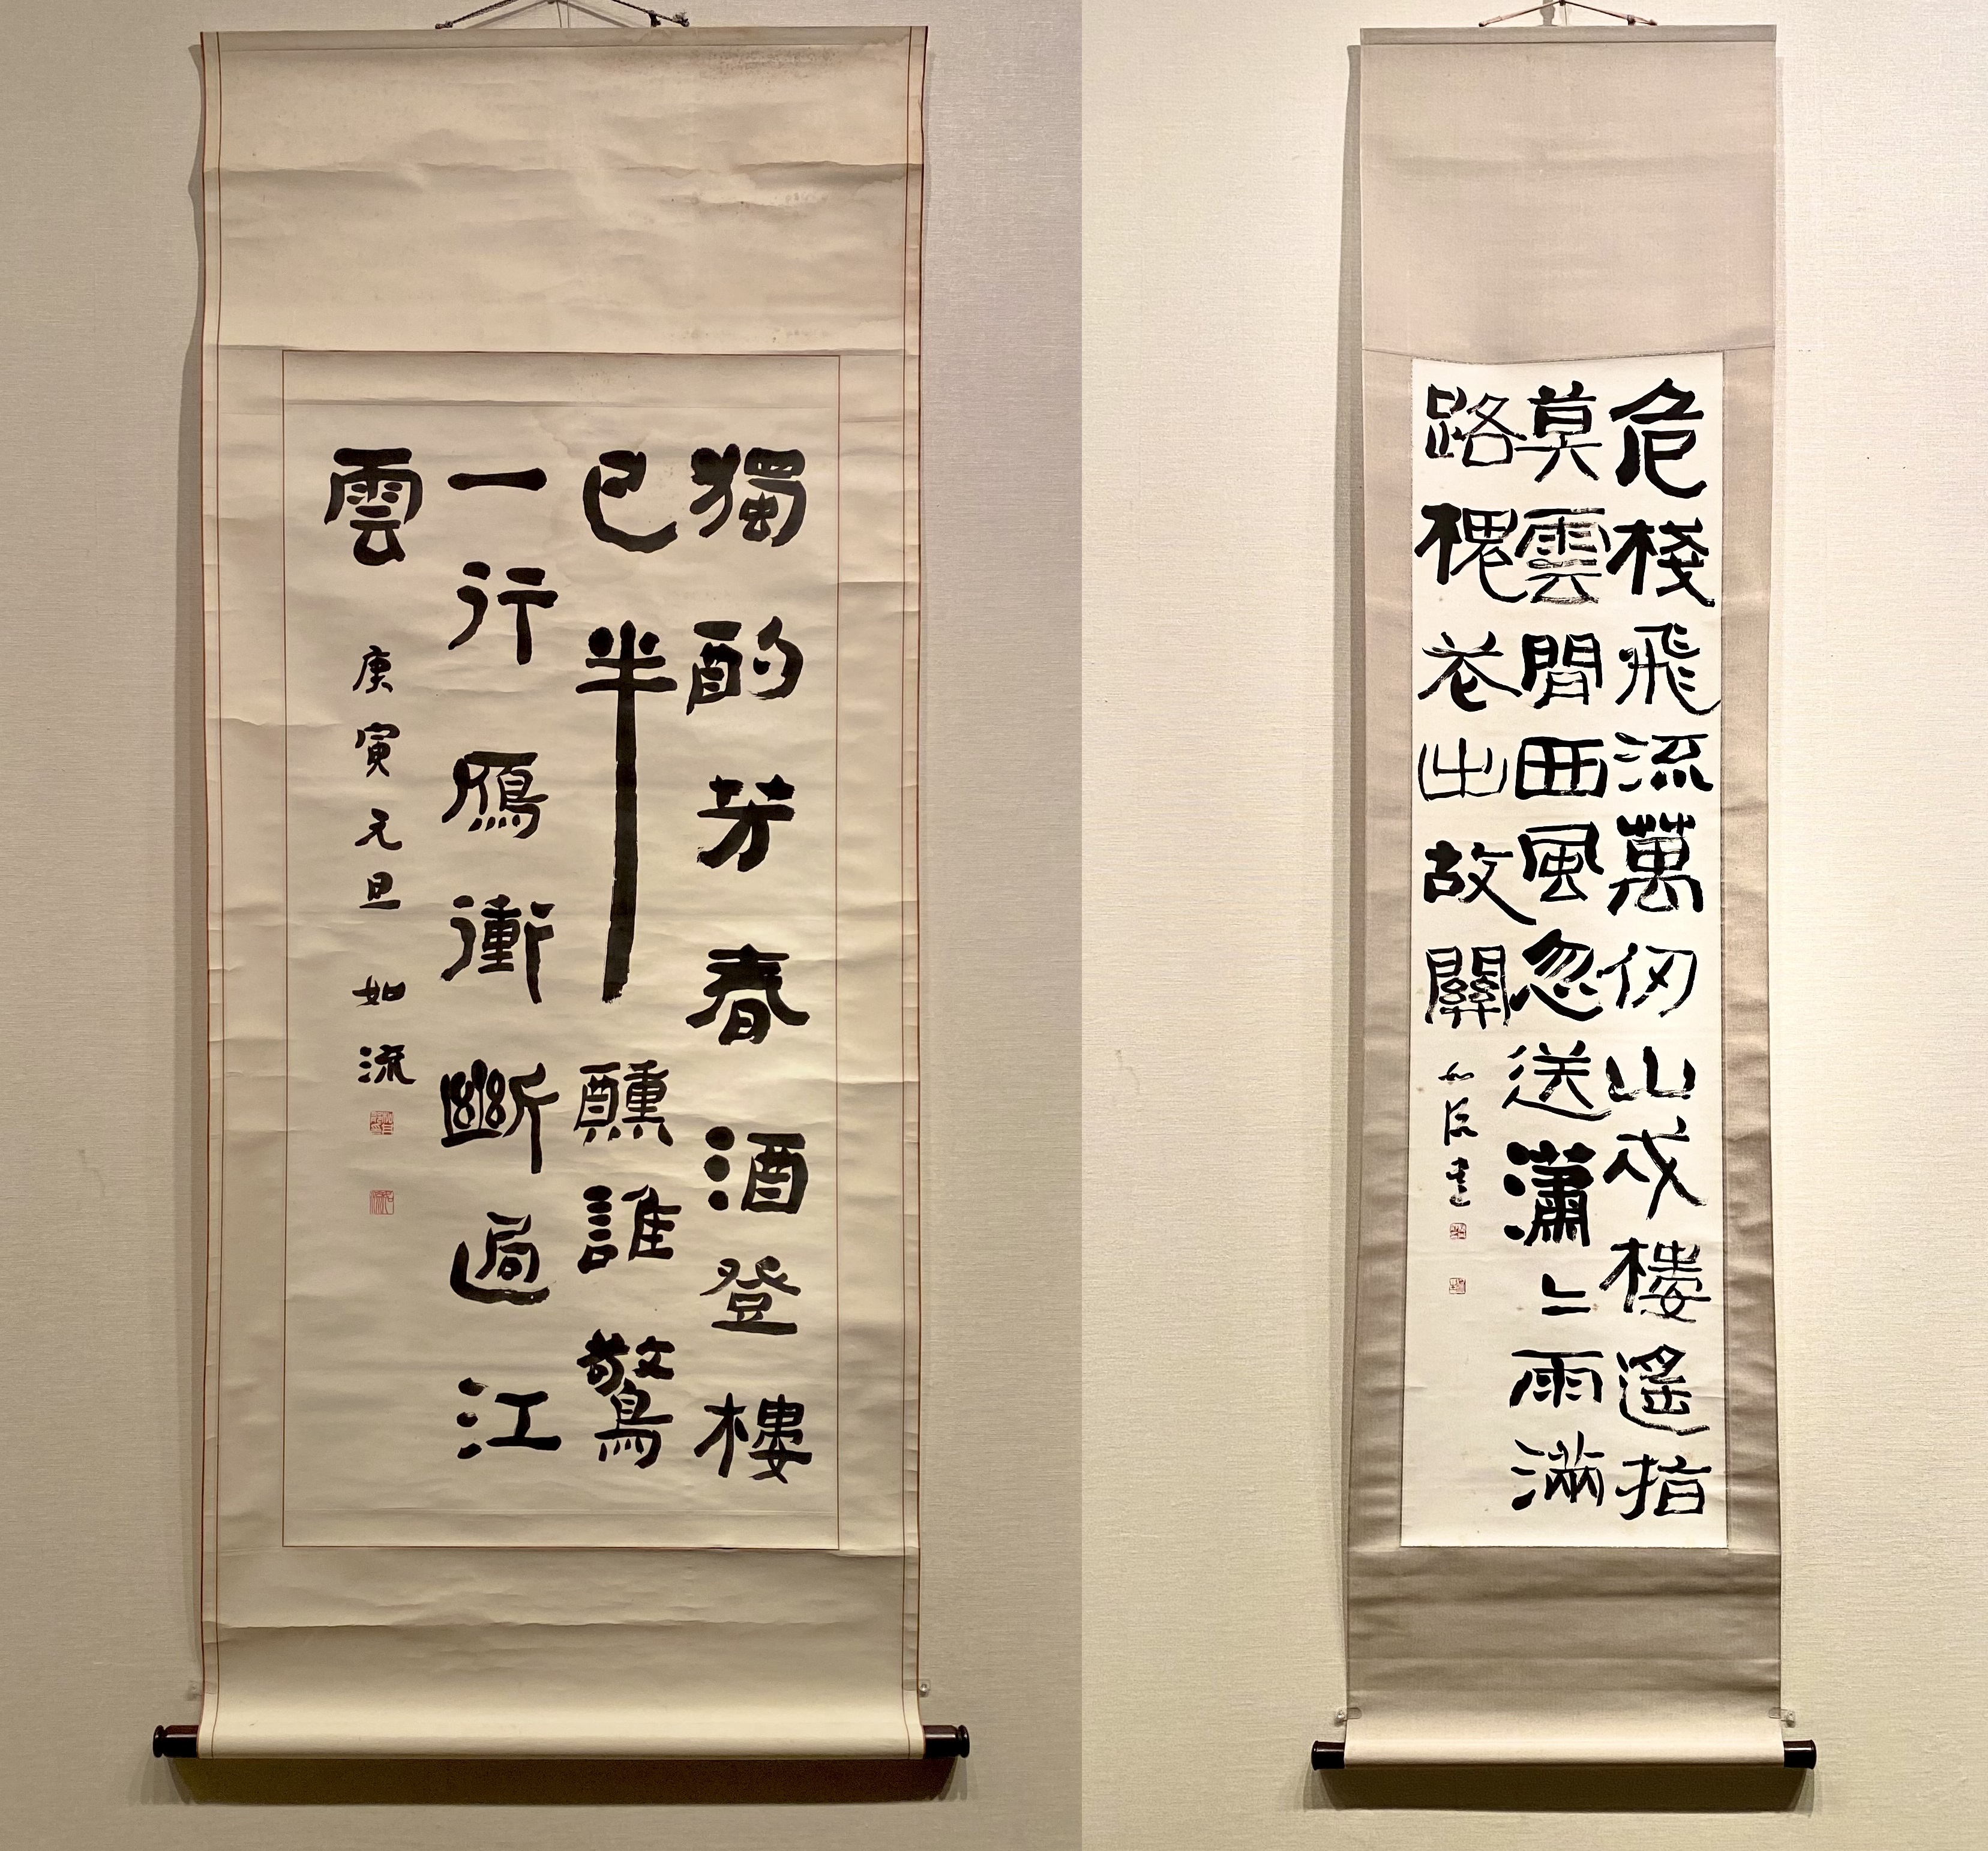 獨酌芳春酒登樓
已半醺誰驚
一行鴈衝斷過江
雲
庚寅元旦 如流
危棧飛流萬仞山戍樓遙指
莫雲間西風忽送瀟〻雨滿
路槐花出故關
如流書